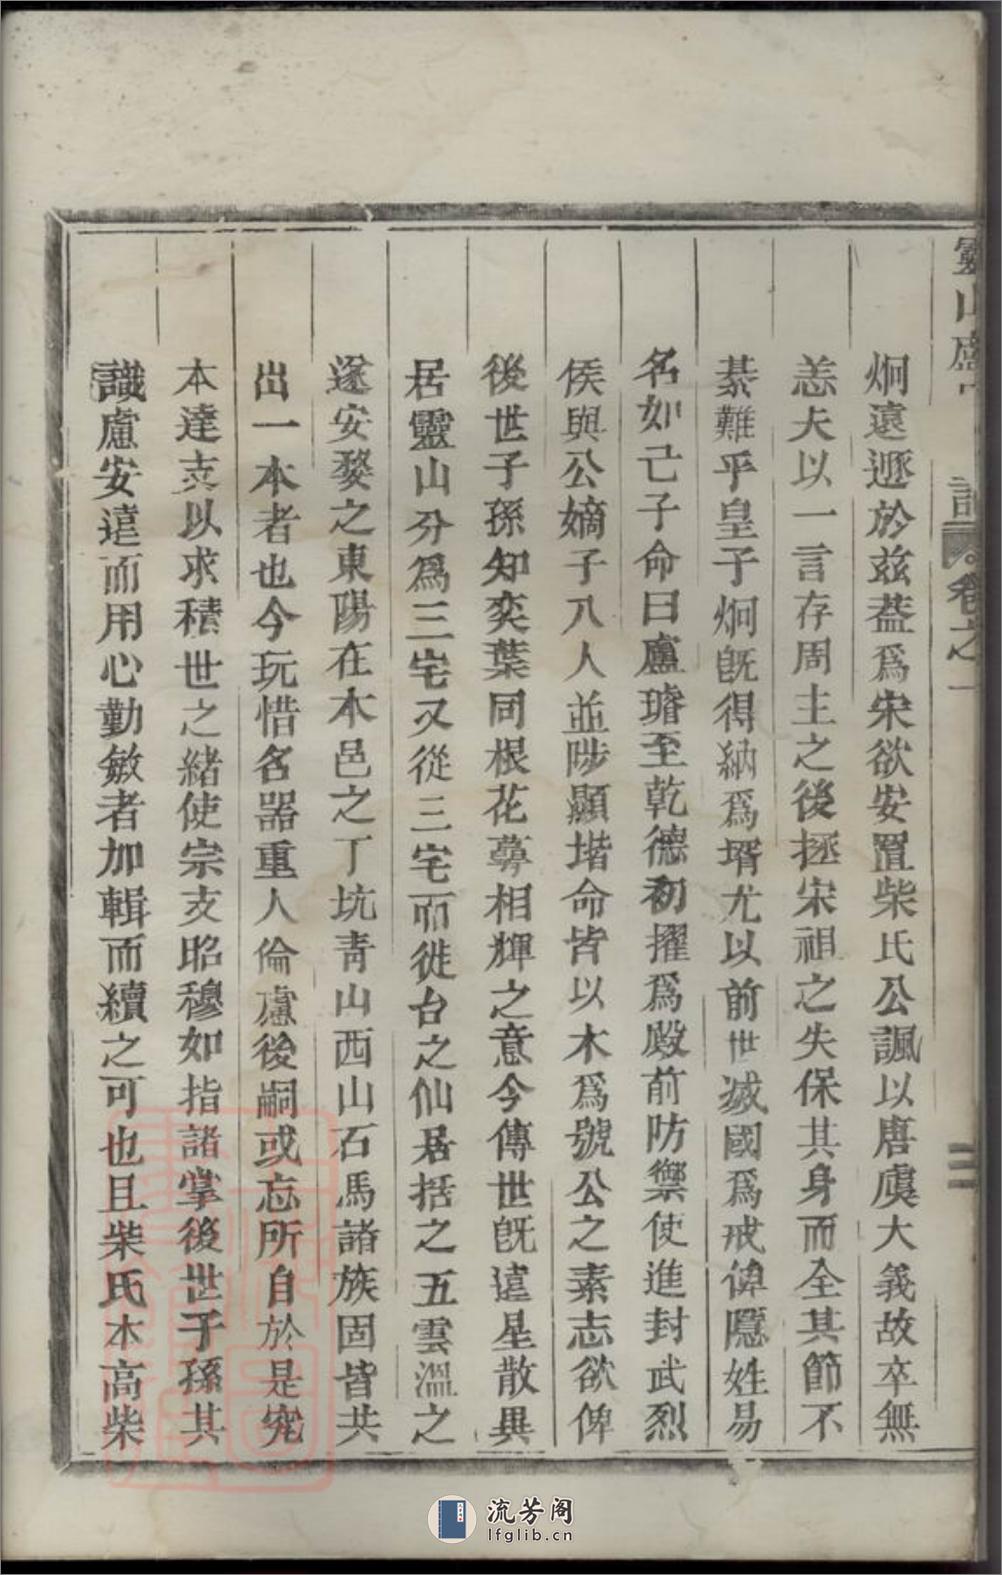 靈山盧
譜
卷之一
二
炯遠遯於兹葢爲宋欲安置柴氏公諷以唐虞大義故卒無
恙夫以一言存周主之後拯宋祖之失保其身而全其節不
綦難乎皇子炯旣得納爲壻尤以前世滅國爲戒俾隱姓易
名如己子命曰盧璿至乾德初擢爲殿前防禦使進封武烈
侯與公嫡子八人並陟顯堦命皆以木爲號公之素志欲俾
後世子孫知奕葉同根花蕚相輝之意今傳世旣遠星散異
居靈山分爲三宅又從三宅而徙台之仙居括之五雲溫之
遂安婺之東陽在本邑之丁坑靑山西山石馬諸族固皆共
出一本者也今玩惜名器重人倫慮後嗣或忘所自於是究
本達支以求積世之緒使宗支昭穆如指諸掌後世子孫其
識慮安遠而用心勤敏者加輯而續之可也且柴氏本高柴
流芳阁
lfglib.cn